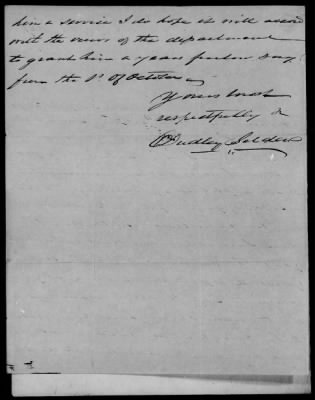 him a service I do hope it will accord
with the views of the department
to grant him a years furlou
from the 1st of October
Yours most
respectfully &
Dudley Selden